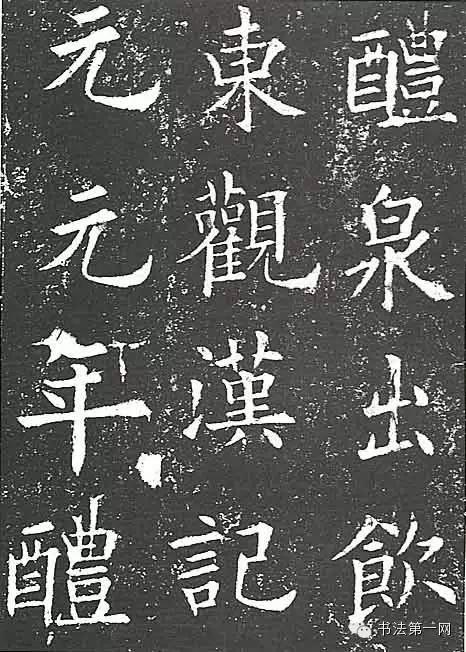 醴泉出飲
東觀漢記
元元年醴
书法第一网